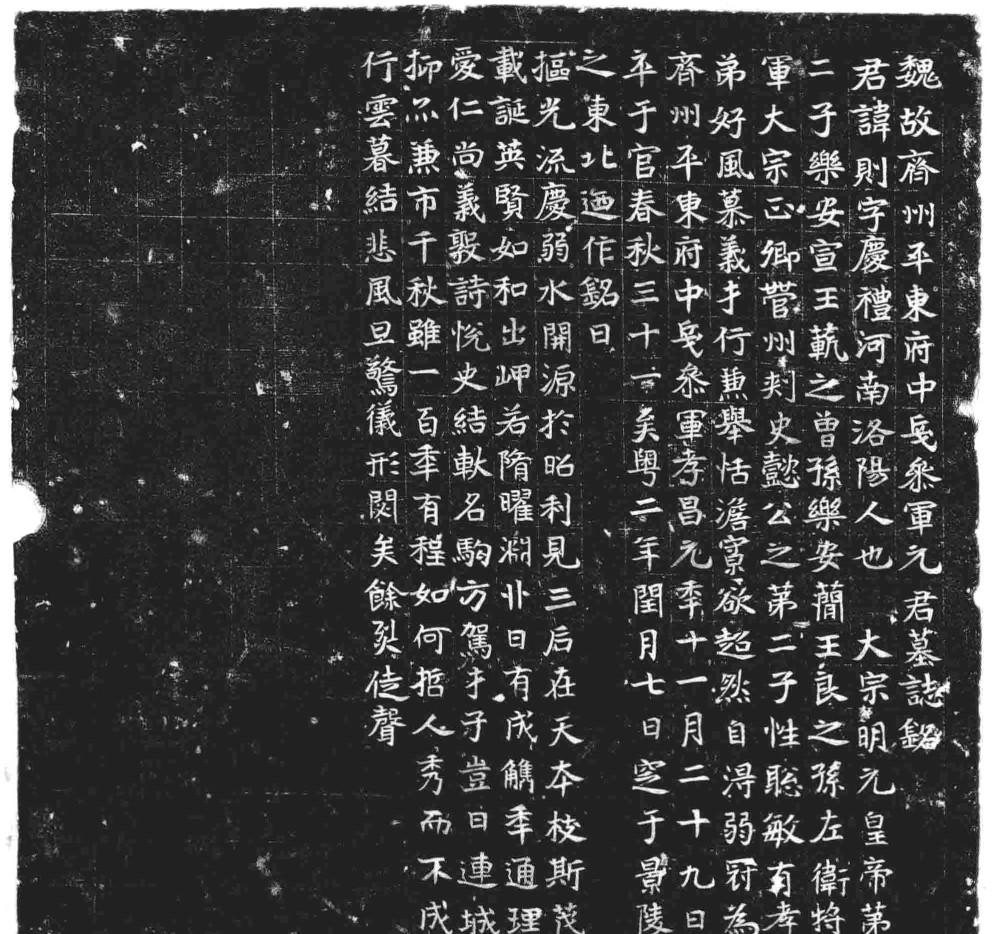 魏故齊州平東府中兵叅軍元君墓誌銘
君諱則字慶禮河南洛陽人也大宗明元皇帝第
二子樂安宣王範之曾孫樂安簡王良之孫左衛將
軍大宗正卿營州刺史懿公之第二子性聡敏有孝
弟好風慕義才行兼舉恬澹寡欲超然自得弱冠為
齊州平東府中兵叅軍孝昌元年十一月二十九日
卒于官春秋三十一矣粤二年閏月七日窆于景陵
之東北迺作銘曰
摳光流慶弱水開源於昭利見三后在天本枝斯茂
載誕英賢如和出岬若隋曜淵丱日有成觿年通理
愛仁尚義敦詩悅史結軑名駒方駕才子豈曰連城
抑亦兼市千秋雖一百年有程如何哲人秀而不成
行雲暮結悲風旦驚儀形閔矣餘烈徒聲